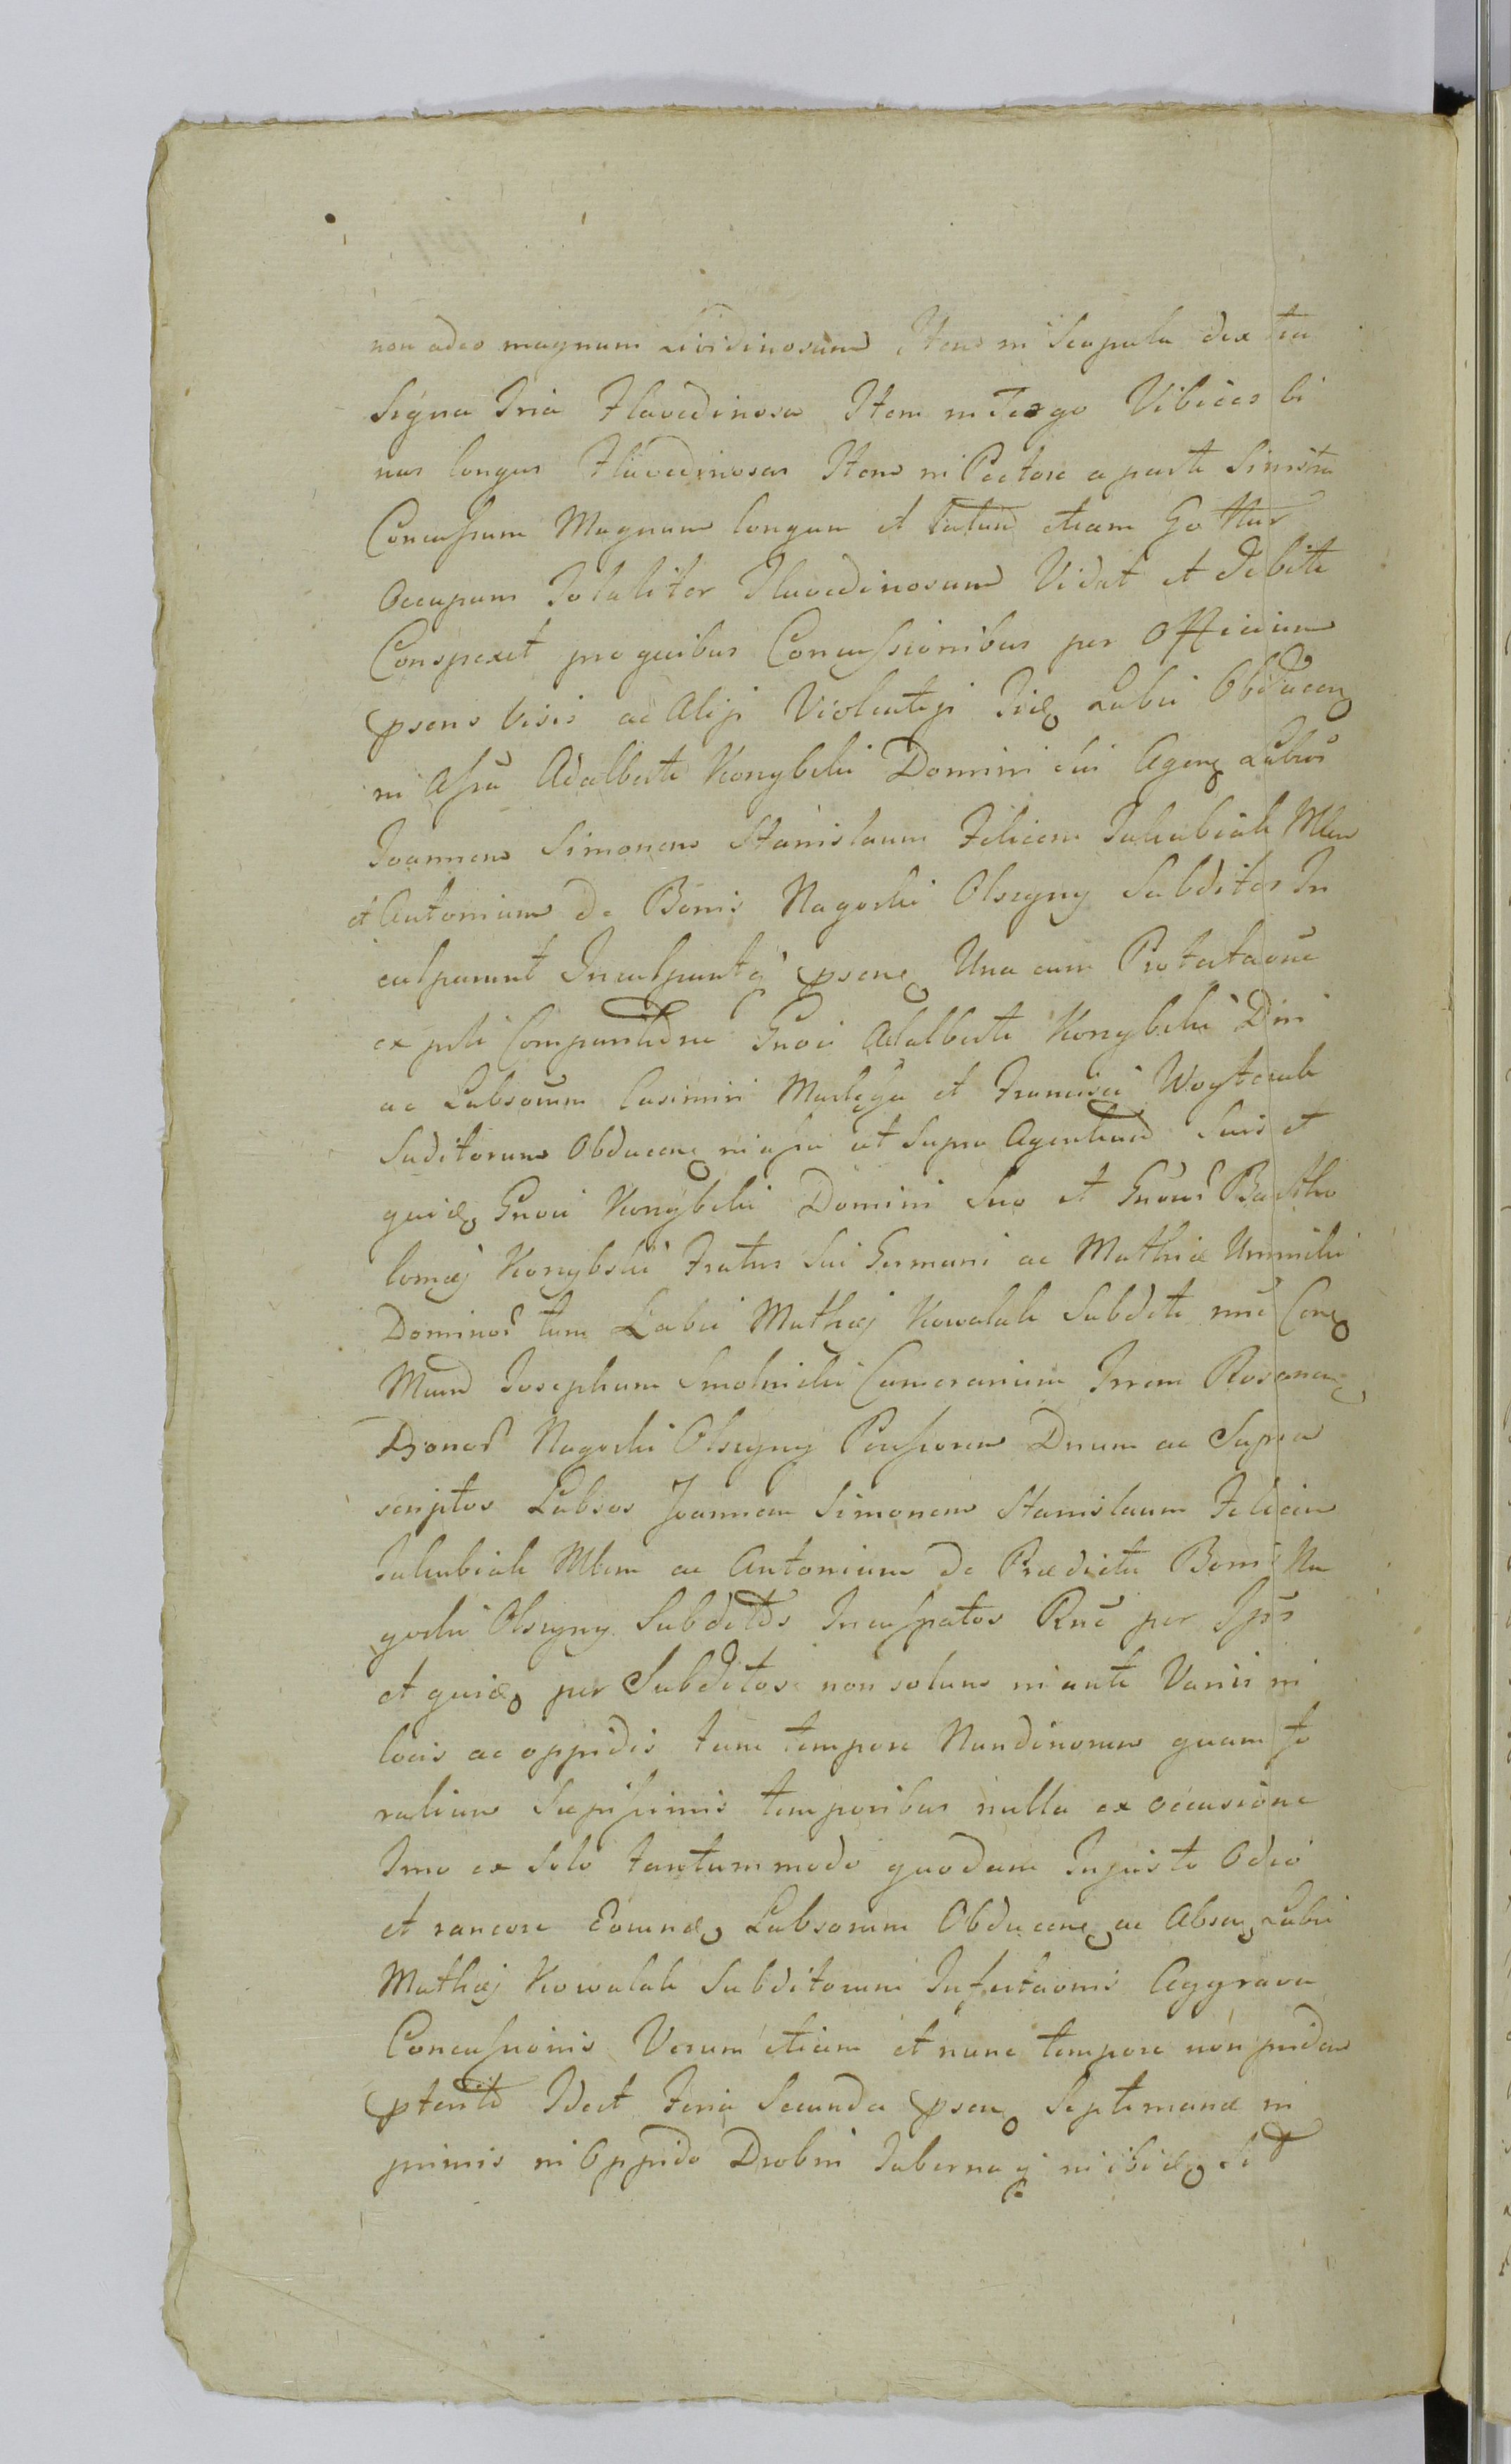 non adeo magnum Lividinosum Item in Scapula dextra
Signa Tria Flavedinosa Item in Tergo Vibices bi
nas longas Flavedinosas Item in Pectore a parte Sinistra
Concussum Magnum longum et latum etiam Guttur
Occupans Totaliter Flavedinosum Vidit et debite
Conspexit pro quibus Concussionibus per Officium
psens visis ac Alijs Violentijs Iidē Labsi Obducen
in Assa Adalberti Konybski Domini sui Agen Labsos
Joannem Simonem Stanislaum Felicem Jakubiak Mlem
et Antonium de Bonis Nagorki Olszyny Subditos In
culparunt Inculpantq psene Una cum Protestaōne
ex pte Comparitōne Gnosi Adalberti Konybski Dni
ac Labsorum Casimiri Maslęga et Francisci Woytczak
Subditorum Obducen in assa ut Supra Agentium Suis et
quidē Gnosi Konybski Domini Suo et Gnosor Bartho
lomæj Konybski Fratris Sui Germani ac Mathiæ Uminski
Dominor tum Labsi Mathæj Kowalak Subditi nnē Con
Mum Josephum Smolinski Camerarium Trrem Rosanen
Bonor Nagorki Olszyny Possorem Dnum ac Supra
scriptos Labsos Joannem Simonem Stanislaum Felicem
Jakubiak Mlem ac Antonium de Prædictis Bonis Na
gorki Olszyny Subditos Inculpatos Rnē per Ipsos
et quidē per Subditos non solum in ante Variis in
locis ac oppidis tum tempore Nundinorum quam fo
ralium Sæpissimis temporibus nulla ex occasione
Imo ex Solo tantummodo quodam Injusto Odio
et rancore Eorundē Labsorum Obducen ac Absen Labsi
Mathæj Kowalak Subditorum Infestaōnis Aggrava
Concussionis Verum etiam et nunc tempore non pridem
pterito Idest Feria Secunda psen Septimanæ in
primis in Oppido Drobin Tabernaq in ibidē Sit